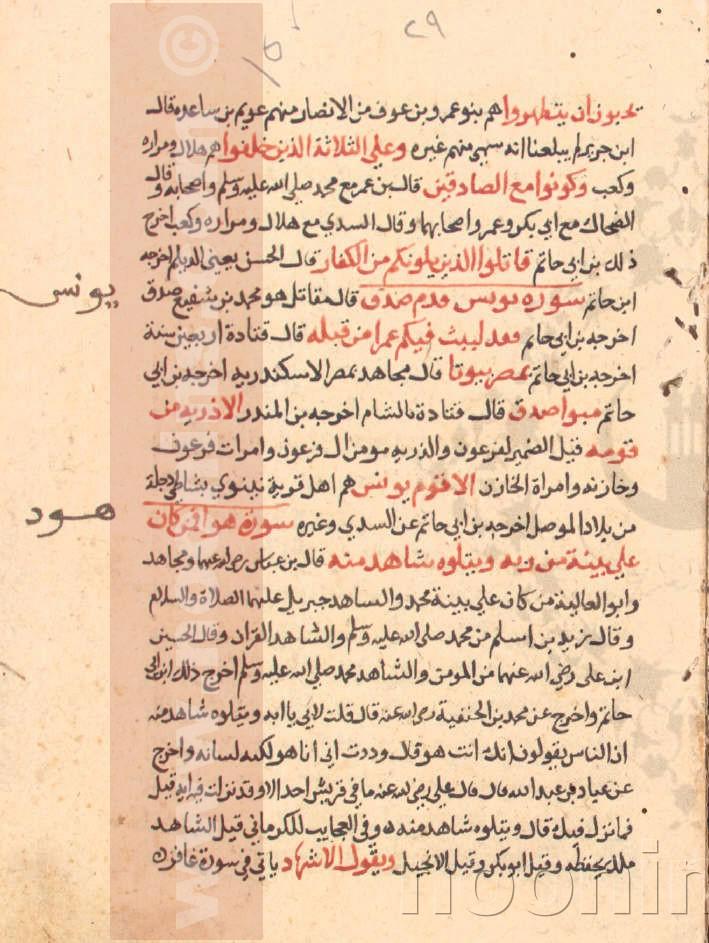 ٢٩
يحبون ان يتطهروا هم بنو عمرو بن عوف من الانصار منهم عويم بن ساعده قال
ابن جرير لم يبلغنا انه سمى منهم غيره وعلي الثلاثة الذين خلفوا هم هلال ومراره
وكعب وكونوا مع الصادقين قال بن عمر مع محمد صلى الله عليه وسلم واصحابه وقال
الضحاك مع ابي بكر وعمر واصحابهما وقال السدي مع هلال ومراره وكعب اخرج
ذلك بن ابي حاتم قاتلوا الذين يلونكم من الكفار قال الحسن يعني الديلم اخرجه
ابن حاتم سورة يونس قدم صدق قال مقاتل هو محمد بن شفيع صدق
يونس
اخرجه بن ابي حاتم فقد لبثت فيكم عمرا من قبله قال قتادة اربعين سنة
اخرجه بن ابي حاتم بمصر بيوتا قال مجاهد بمصر الاسكندريه اخرجه بن ابي
حاتم مبوا صدق قال قتادة بالشام اخرجه بن المنذر الا ذريه من
قومه قيل الضمير لفرعون والذريه مومن ال فرعون وامرات فرعون
وخازنه وامراة الخازن الا قوم يونس هم اهل قرية نينوي بشاطي دجلة
من بلاد الموصل اخرجه بن ابي حاتم عن السدي وغيره سورة هود افمن كان
هود
علي بينة من ربه ويتلوه شاهد منه قال بن عباس رضي الله عنهما ومجاهد
وابو العالية من كان علي بينة محمد والشاهد جبريل عليهما الصلاة والسلام
وقال زيد بن اسلم من محمد صلى الله عليه وسلم والشاهد القران وقال الحسين
ابن على رضي الله عنهما من المومن والشاهد محمد صلى الله عليه وسلم اخرج ذلك ابن ابي
حاتم واخرج عن محمد بن الحنفية رضي الله عنه قال قلت لابي يا ابه ويتلوه شاهد منه
ان الناس يقولون انك انت هو قال وددت اني انا هو لكنه لسانه واخرج
عن عباد بن عبد الله قال قال علي رضي الله عنه ما في قريش احد الا وقد نزلت فيه اية قيل
فما نزل فيك قال ويتلوه شاهد منه وفي العجايب للكرماني قيل الشاهد
ملك يحفظه وقيل ابو بكر وقيل الانجيل ويقول الاشهاد ياتي في سورة غافر
noorin